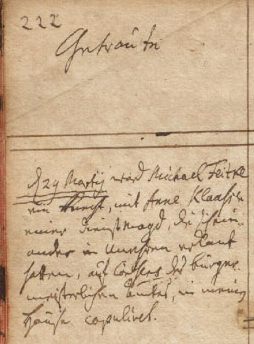 222
Getraute
d 29 Martij ward Michael
ein Knecht, mit Anne Klaaßen
einer Dienstmagd, die sich ein
ander in Unehren
hatten, auf Consens des bürger
meisterlichen Amtes, in meinem
Hause copuliret.